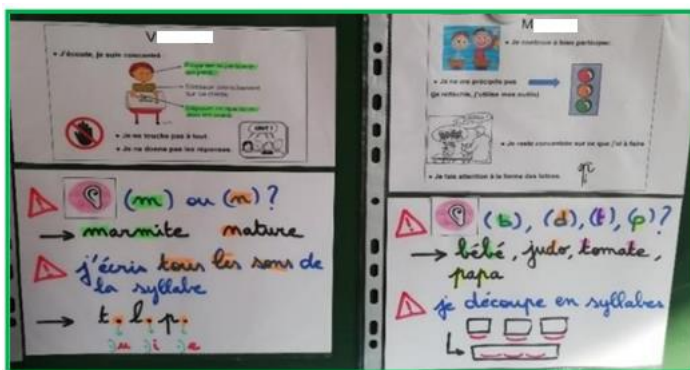 V
• J'écoute, je suis concentré
• Je ne touche pas à tout.
• Je ne donne pas les réponses.
(m) ou (n) ?
→ marmite nature
j'écris tous les sons de
la syllabe
→ t. l. p.
u i e
M
• Je continue à bien participer.
• Je ne me précipite pas
(je réfléchis, j'utilise mes outils)
• Je reste concentrée sur ce que j'ai à faire
• Je fais attention à la forme des lettres.
(b), (d), (t), (p) ?
→ bébé, judo, tomate,
papa
je découpe en syllabes